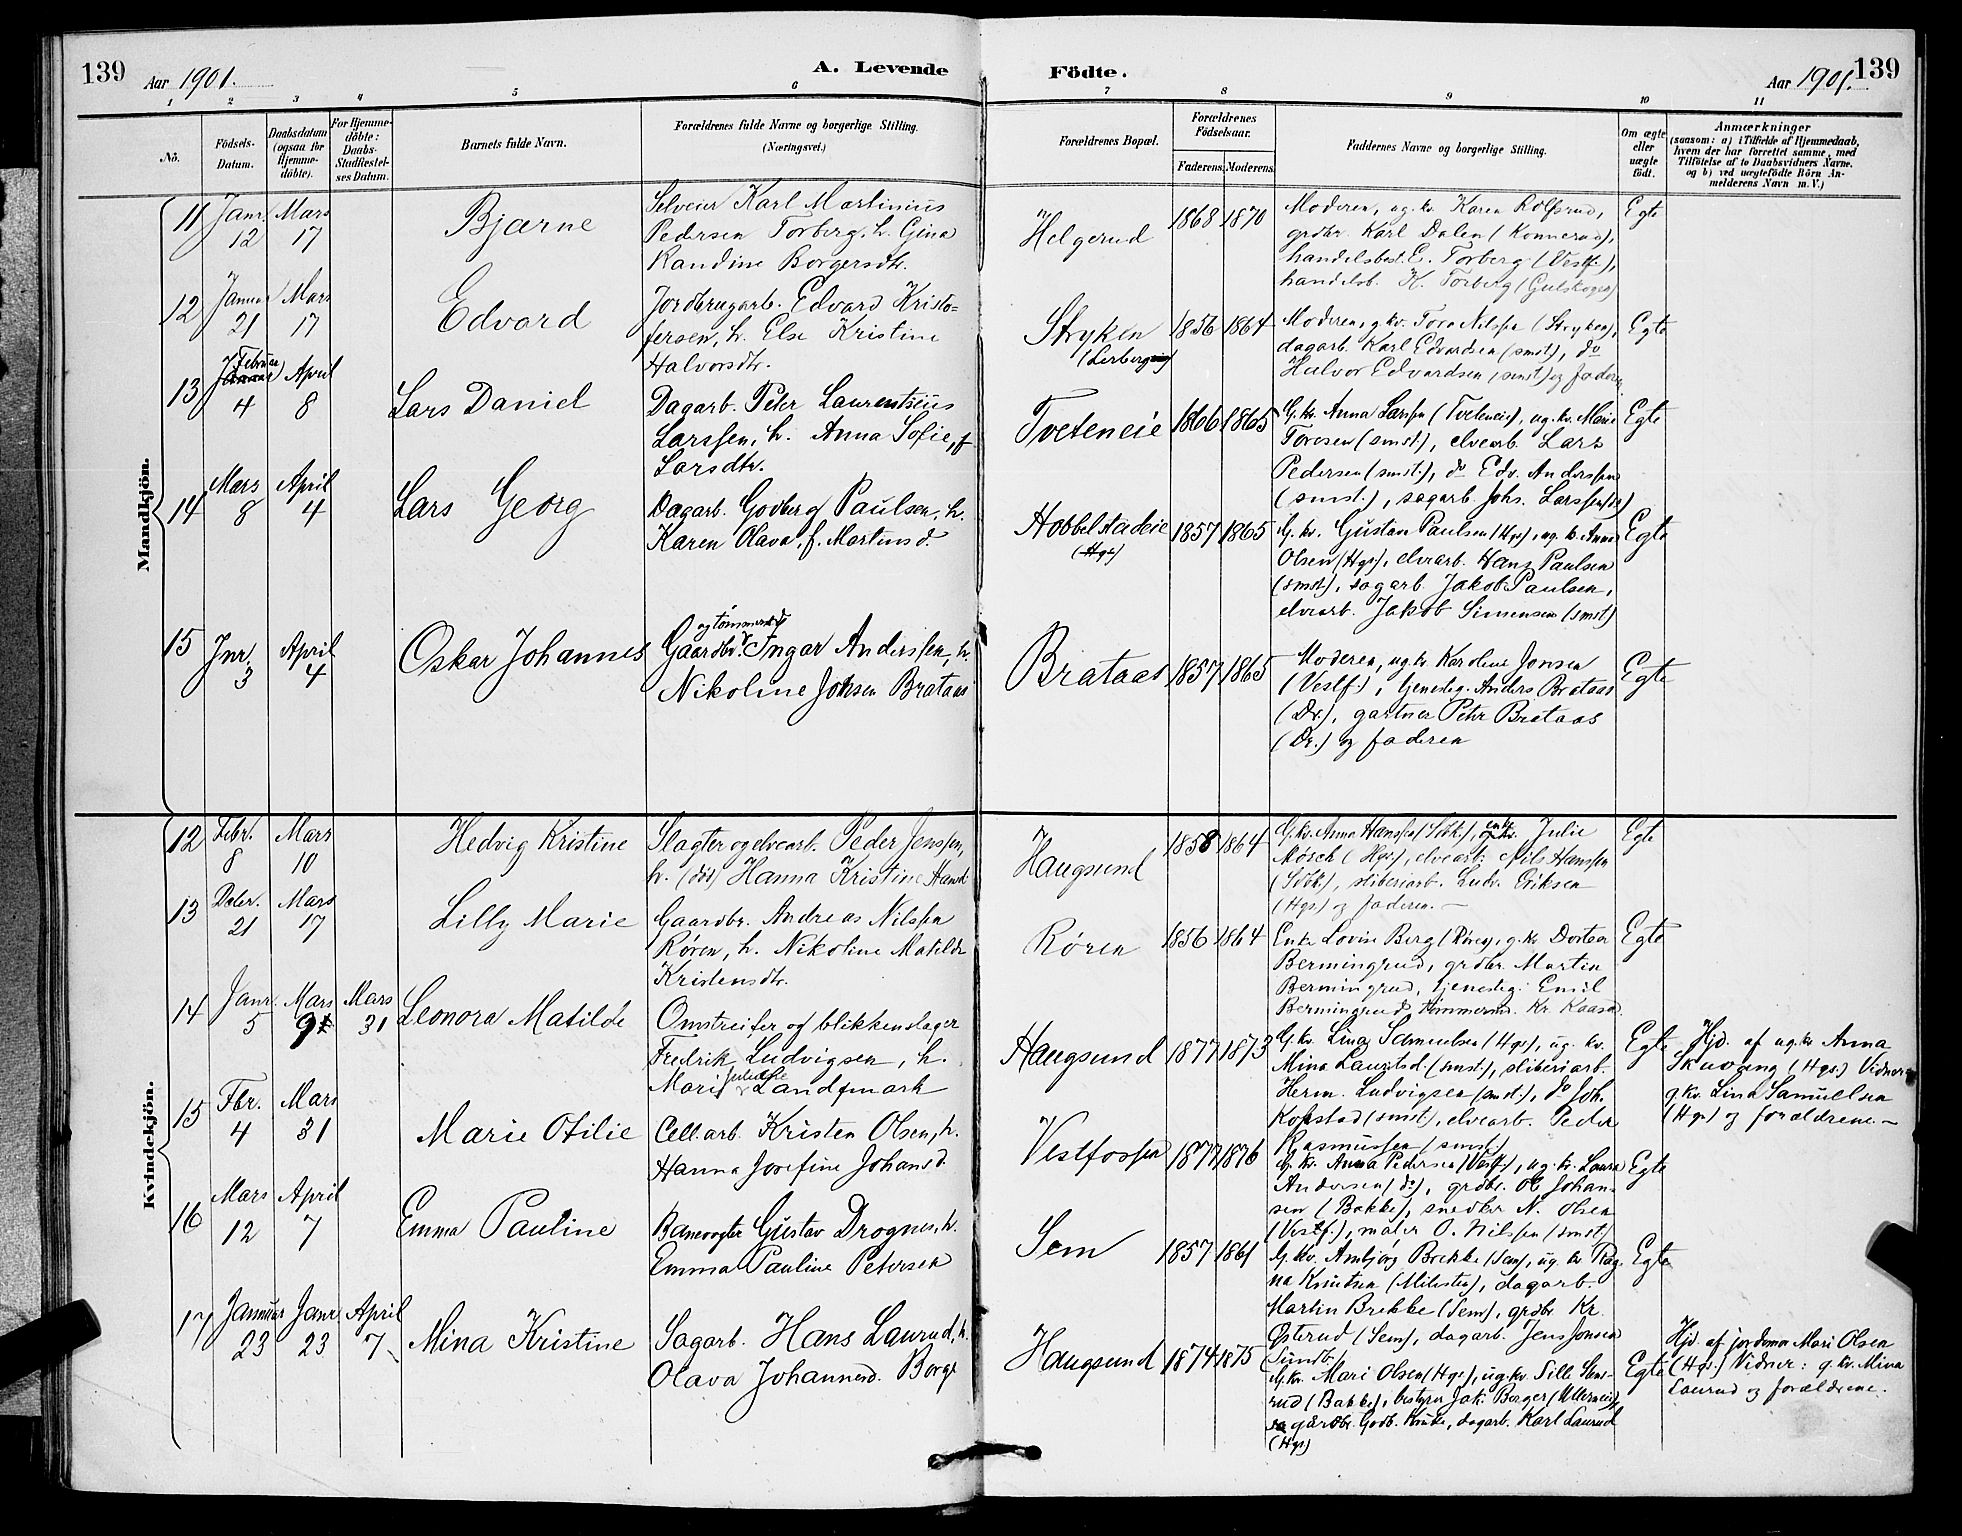 139
Aar 1901.
A. Levende
Födte.
Aar 1901.
139
1 2 3 4 5 6 7 8 9 10 11
Nö.
Födsels-Datum.
Daabsdatum (ogsaa for Hjemme-döbte).
For Hjemme-döbte: Daabs-Stadfæstel-ses Datum.
Barnets fulde Navn.
Forældrenes fulde Navne og borgerlige Stilling.
(Næringsvei.)
Forældrenes Bopæl.
Forældrenes Födselsaar.
Faderens. Moderens.
Faddernes Navne og borgerlige Stilling.
Om ægte eller uægte födt.
Anmærkninger
(saasom: a) i Tilfælde af Hjemmedaab,
hvem der har forrettet samme, med
Tilföielse af to Daabsvidners Navne.
og b) ved uægtefödte Börn An-
melderens Navn m. V.)
Mandkjön.
11 Janr. 12 Mars 17 Bjarne
Selveier Karl Martinius
Pedersen Torberg, h. Gina
Randine Borgersdtr.
Helgerud 1868 1870
Moderen, ug.kv. Karen Rolfsrud,
grdbr. Karl Dalen (Konnerud),
handelsbest. E. Torberg (Vestf.),
handelsb. K. Torberg (Gulskogen)
Egte
12 Januar 21 Mars 17 Edvard
Jordbrugarb. Edvard Kristo-
fersen, h. Else Kristine
Halvorsdtr.
Stryken 1856 1864
Moderen, g.kv. Tora Nilsen (Stryken),
dagarb. Karl Edvardsen (smst), do
Halvor Edvardsen (smst) og faderen
Egte
13 Februar 4 April 8 Lars Daniel
Dagarb. Peter Laurentsius
Larssen, h. Anna Sofie, f
Larsdtr.
Tveteneie 1866 1865
G.kv. Anna Larssen (Tveteneie), ug.kv. Marie
Toresen (smst), elvearb. Lars
Pedersen (smst.), do Edv. Anderssen
(smst.), sagarb. Johs. Larssen
Egte
14 Mars 8 April 4 Lars Georg
Dagarb. Godberg Paulsen, h.
Karen Olava, f. Martinsd.
Hobbelstadeie
(Hgs) 1857 1865
G.kv. Gustava Paulsen (Hgs), ug.k. Anna
Olsen (Hgs), elvearb. Hans Paulsen
(smst), sagarb. Jakob Paulsen,
elvearb. Jakob Simensen (smst)
Egte
15 Jnr. 3 April 4 Oskar Johannes
og tømmerm.
Gaardbr. Ingar Anderssen, h.
Nikoline Johsen Brataas
Brataas 1857 1865
Moderen, ug.kv Karoline Jonsen
(Vestf.), tjenesteg. Anders Brataas
(Dr.), gartner Peter Brataas
(Dr.) og faderen
Egte
Kvindekjön.
12 Febr. 8 Mars 10 Hedvig Kristine
Slagter og elvearb. Peder Jenssen,
h. (död) Hanna Kristine Hansd.
Haugsund 1858 1864
G.kv. Anna Hanssen, enke Julie
Mörch (Hgs), elvearb. Nils Hanssen
sliberiarb. Ludv. Eriksen
(Hgs) og faderen.
Egte
13 Dcbr. 21 Mars 17 Lilly Marie
Gaardbr. Andreas Nilssen
Røren, h. Nikoline Matilde
Kristensdtr.
Røren 1856 1864
Enke Lovise Berg (Røren), g.kv. Dortea
Bermingrud, grdbr. Martin
Bermingrud, tjenesteg. Emil
Bermingrud, tømmerm. Kr. Kaasa
Egte
14 Janr. 5 Mars 9 Mars 31 Leonora Matilde
Omstreifer og blikkenslager
Fredrik Ludvigsen, h.
Mari Julianne Landmark
Haugsund 1877 1873
G.kv. Lina Samuelsen (Hgs), ug. kv.
Mina Lauritsd. (smst), sliberiarb.
Herm. Ludvigsen (smst.), do Joh.
Kopstad (smst), elvearb. Peder
Rasmussen (smst.)
Egte
Hjd. af ug.kv Anna
Skuvang (Hgs.) Vidner:
g.kv. Lina Samuelsen
(Hgs) og forældrene.
15 Fbr. 4 Mars 31 Marie Otilie
Cell.arb. Kristen Olsen, h.
Hanna Josefine Johansd.
Vestfossen 1877 1876
G.kv. Anna Pedersen (Vestf.), ug.kv. Laura
Andersen (do), grdbr. Ol Johan-
sen (Bakke), snedker N. Olsen
(Vestf.), maler O. Nilssen (smst)
Egte
16 Mars 12 April 7 Emma Pauline
Banevogter Gustav Drognes, h.
Emma Pauline Petersen
Sem 1857 1861
G.kv. Ambjørg Brekke (Sem), ug.kv Rag-
na Knutsen (Milesten), dagarb.
Martin Brekke (Sem), grdbr Kr.
Østerud (Sem), dagarb. Jens Jonsen
Sundb.
Egte
17 Januar 23 Janr 23 April 7 Mina Kristine
Sagarb. Hans Laurud, h.
Olava Johannesd. Borge
Haugsund 1874 1875
G.kv. Mari Olsen (Hgs), ug.kv. Sille Sens-
rud (Bakke), bestyrer Jak. Borger (Ullerneie),
gårdbr. Godb. Knive, dagarb. Karl Laurud
(Hgs)
Egte
Hjd. af jordemor Mari Olsen
(Hgs.) Vidner: g.kv. Mina
Laurud og forældrene.